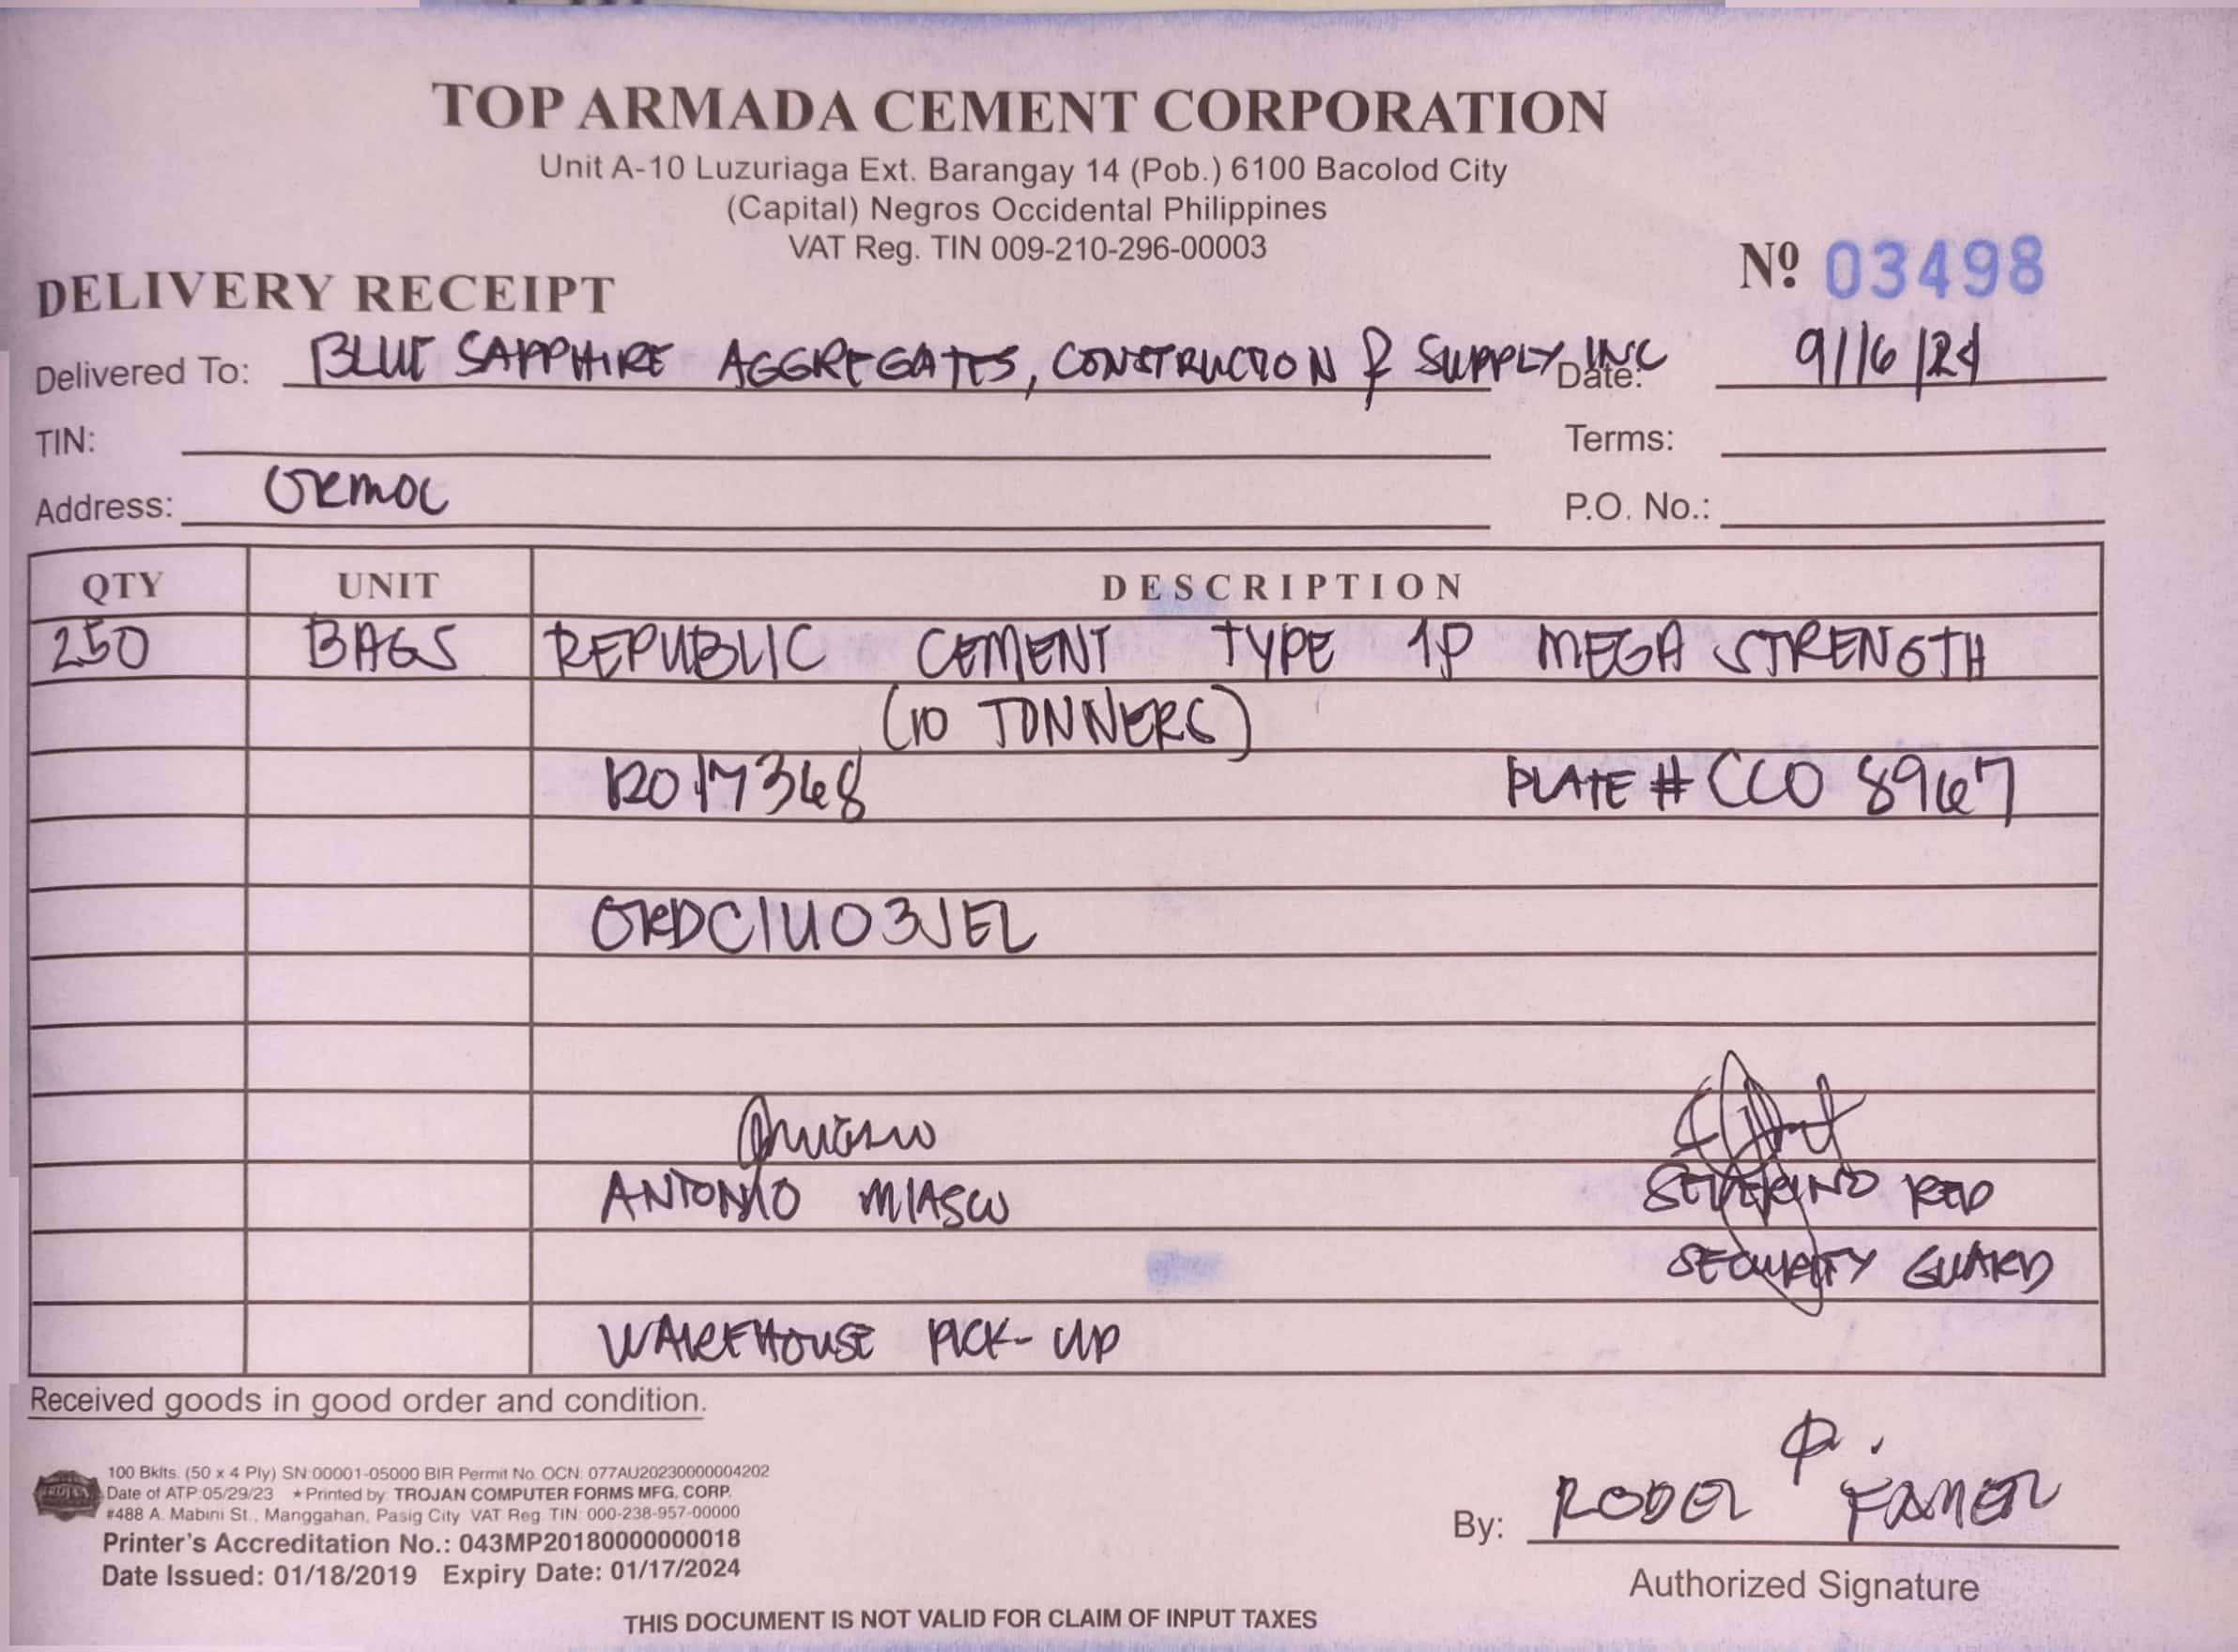 TOP ARMADA CEMENT CORPORATION
Unit A-10 Luzuriaga Ext. Barangay 14 (Pob.) 6100 Bacolod City
(Capital) Negros Occidental Philippines
VAT Reg. TIN 009-210-296-00003
Nº 03498
DELIVERY RECEIPT
Delivered To: BLUE SAPPHIRE AGGREGATES, CONSTRUCTION & SUPPLY, INC Date: 9/16/24
TIN: Terms:
Address: ORMOC P.O. No.:
QTY UNIT DESCRIPTION
250 BAGS REPUBLIC CEMENT TYPE 1P MEGA STRENGTH
(10 TONNERS)
12017368 PLATE # CCO 8967
ORDC1U03JEL
ANTONIO MIASCO SEVERINO RED
SECURITY GUARD
WAREHOUSE PICK-UP
Received goods in good order and condition.
100 Bklts. (50 x 4 Ply) SN:00001-05000 BIR Permit No. OCN: 077AU20230000004202
Date of ATP:05/29/23 ★Printed by: TROJAN COMPUTER FORMS MFG. CORP.
#488 A. Mabini St., Manggahan, Pasig City VAT Reg. TIN: 000-238-957-00000
Printer's Accreditation No.: 043MP20180000000018
Date Issued: 01/18/2019 Expiry Date: 01/17/2024
By: RODEL
Authorized Signature
THIS DOCUMENT IS NOT VALID FOR CLAIM OF INPUT TAXES